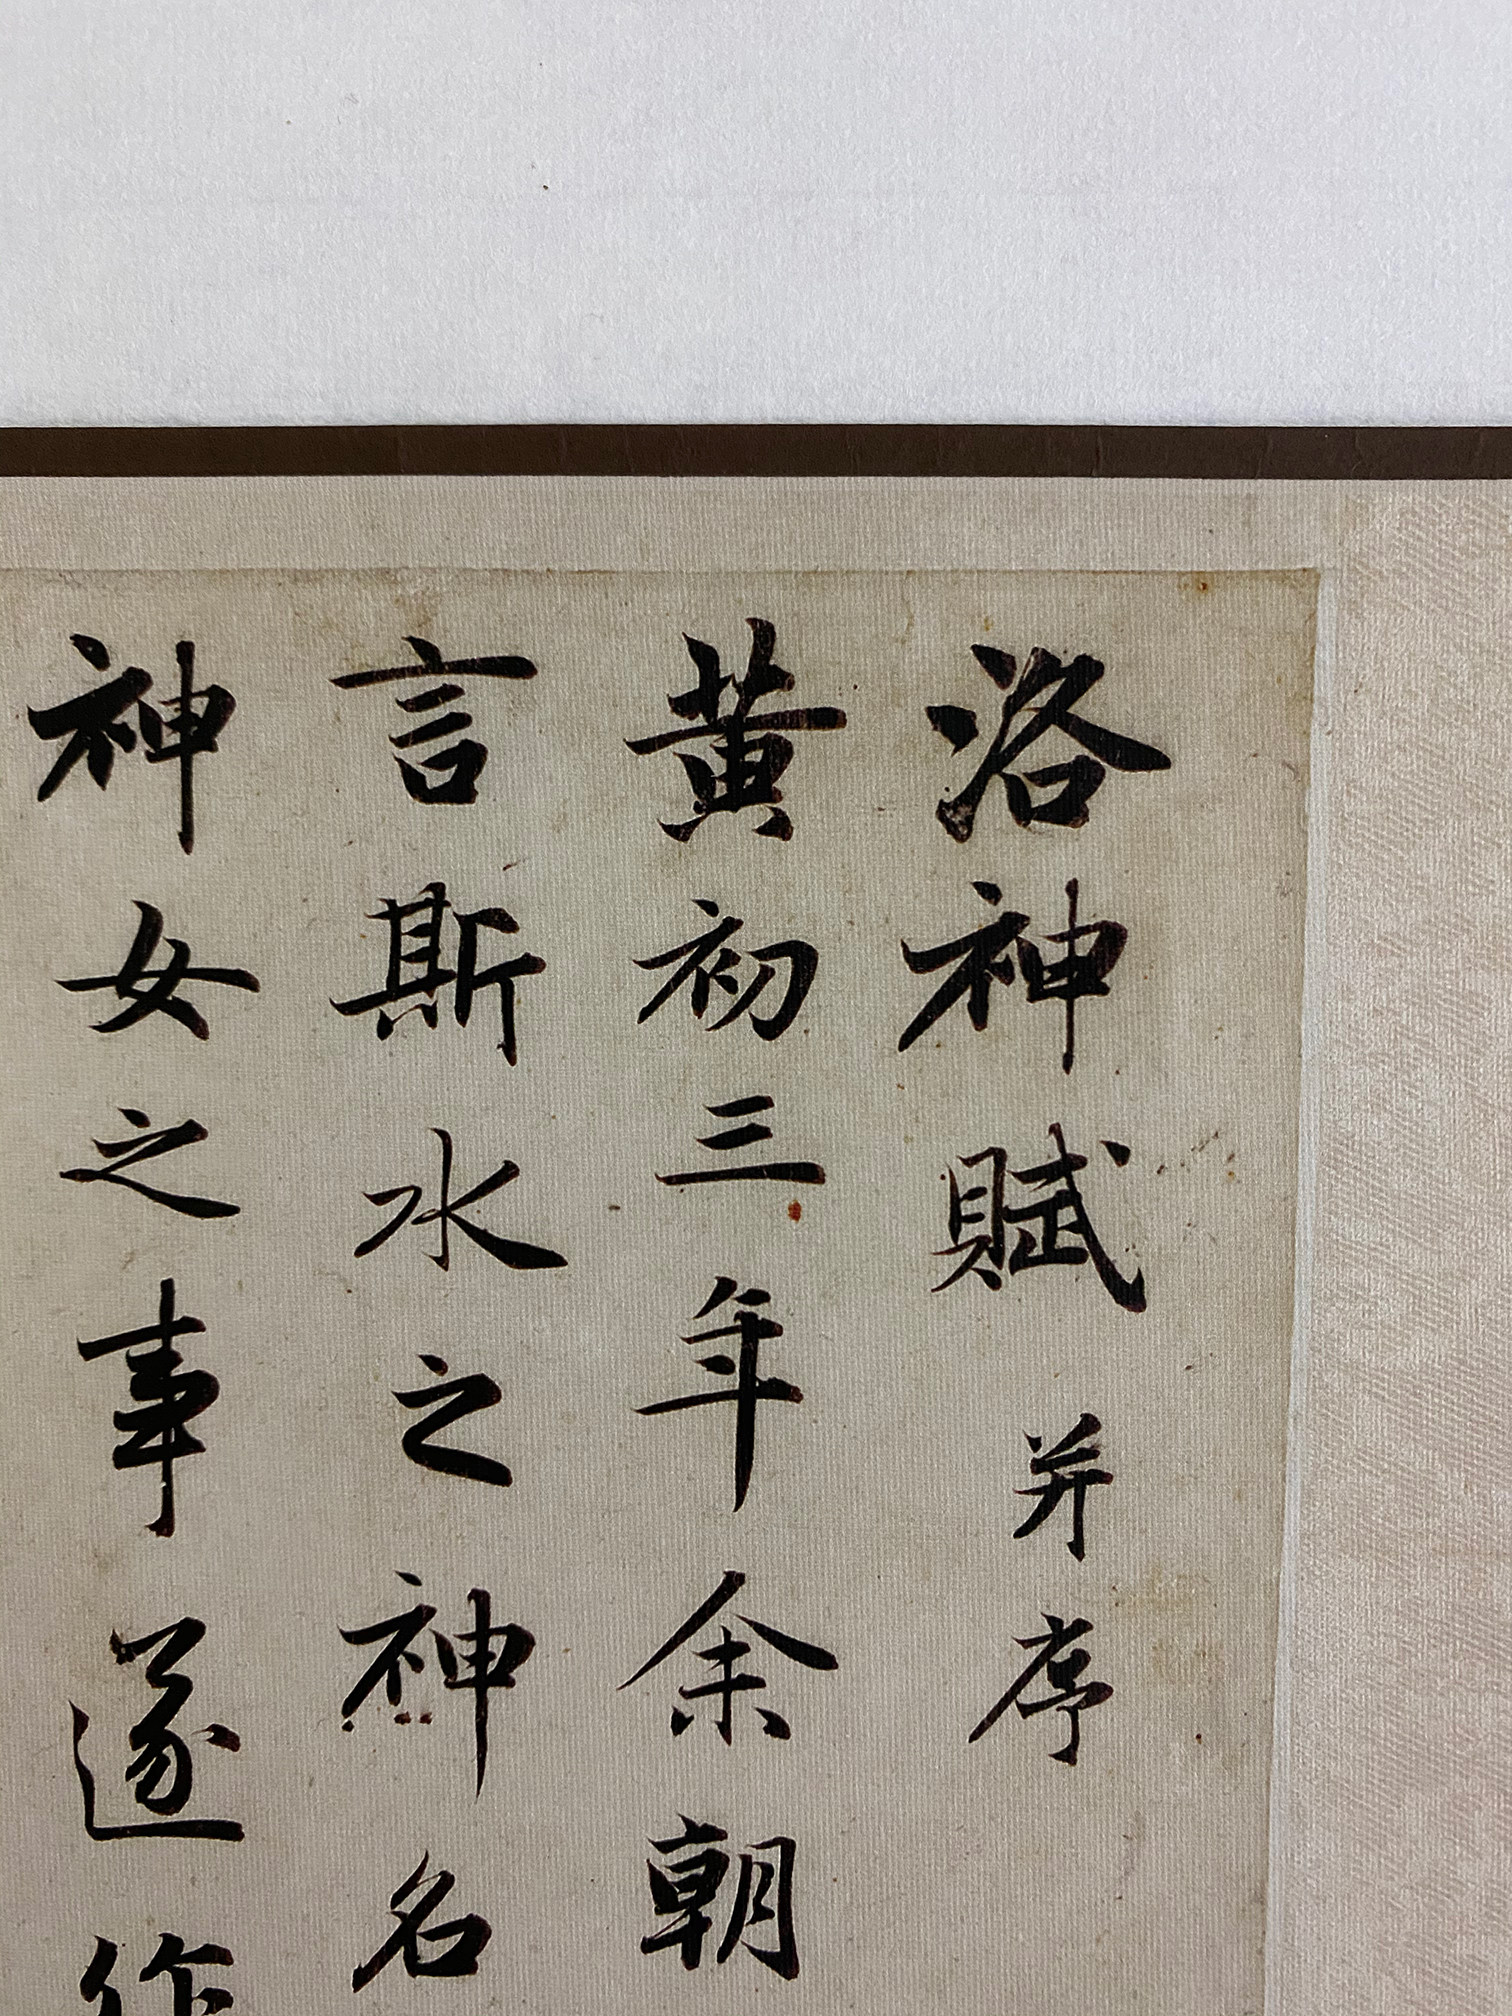 洛神賦 并序
黄初三年余朝
言斯水之神名
神女之事遂作